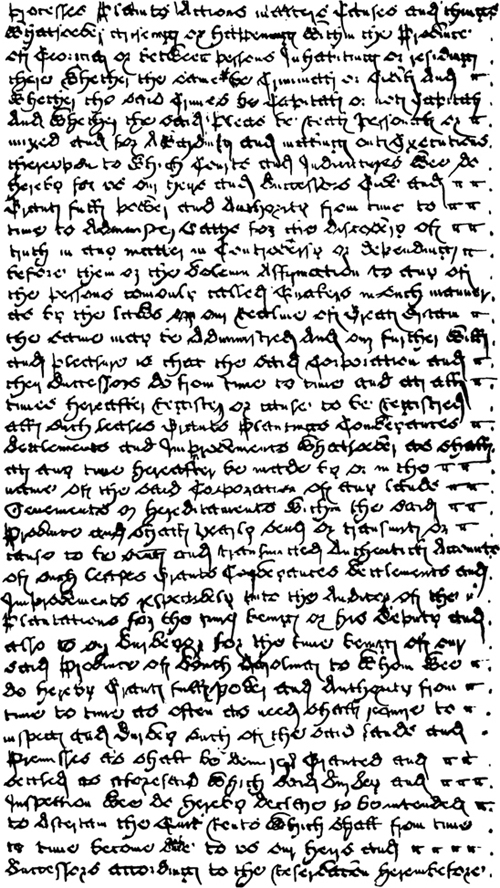 Processes Plaints Actions matters Causes and things
Whatsoever ariseing or happening Within the Province
of Georgia or between persons Inhabiting or resideing
there Whether the same be Criminall or Civill And
Whether the said Crimes be Capitall or not Capitall
And Whether the said Pleas be reall Personall or
mixed and for Awarding and making out Executions
thereupon to Which Courts and Judicatures Wee do
hereby for us our heirs and Successors Give and
Grant full power and Authority from time to
time to Administer Oaths for the discovery of
truth in any matter in Controversy or depending
before them or the solemn Affirmation to any of
the persons comonly called Quakers in such manner
as by the laws of our Realme of Great Britain
the same may be Administred And our further Will
and pleasure is that the said Corporation and
their Successors do from time to time and att all
times hereafter Register or cause to be registred
all such leases Grants Plantings Conveyances
Settlements and Improvements Whatsoever as shall
att any time hereafter be made by or in the
name of the said Corporation of any lands
Tenements or hereditaments Within the said
Province and shall yearly send or transmitt or
cause to be sent and transmitted Authentick Accounts
of such leases Grants Conveyances Settlements and
Improvements respectively unto the Auditor of the
Plantations for the time being or his deputy and
also to our Surveyor for the time being of our
said Province of South Carolina to Whom Wee
do hereby Grant full power and Authority from
time to time as often as need shall require to
inspect and survey such of the said lands and
Premisses as shall be demised Granted and
settled as aforesaid Which said Survey and
Inspection Wee do hereby declare to be intended
to Ascertain the Quit Rents Which shall from time
to time become due to us our heirs and
Successors according to the reservation hereinbefore